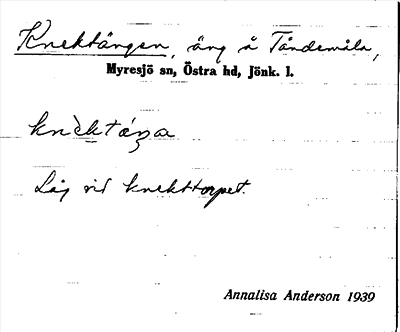 Knektängen, äng å Tåndemåla,
Myresjö sn, Östra hd, Jönk. l.
knèktáŋa
Låg vid knekttorpet.
Annalisa Anderson 1939